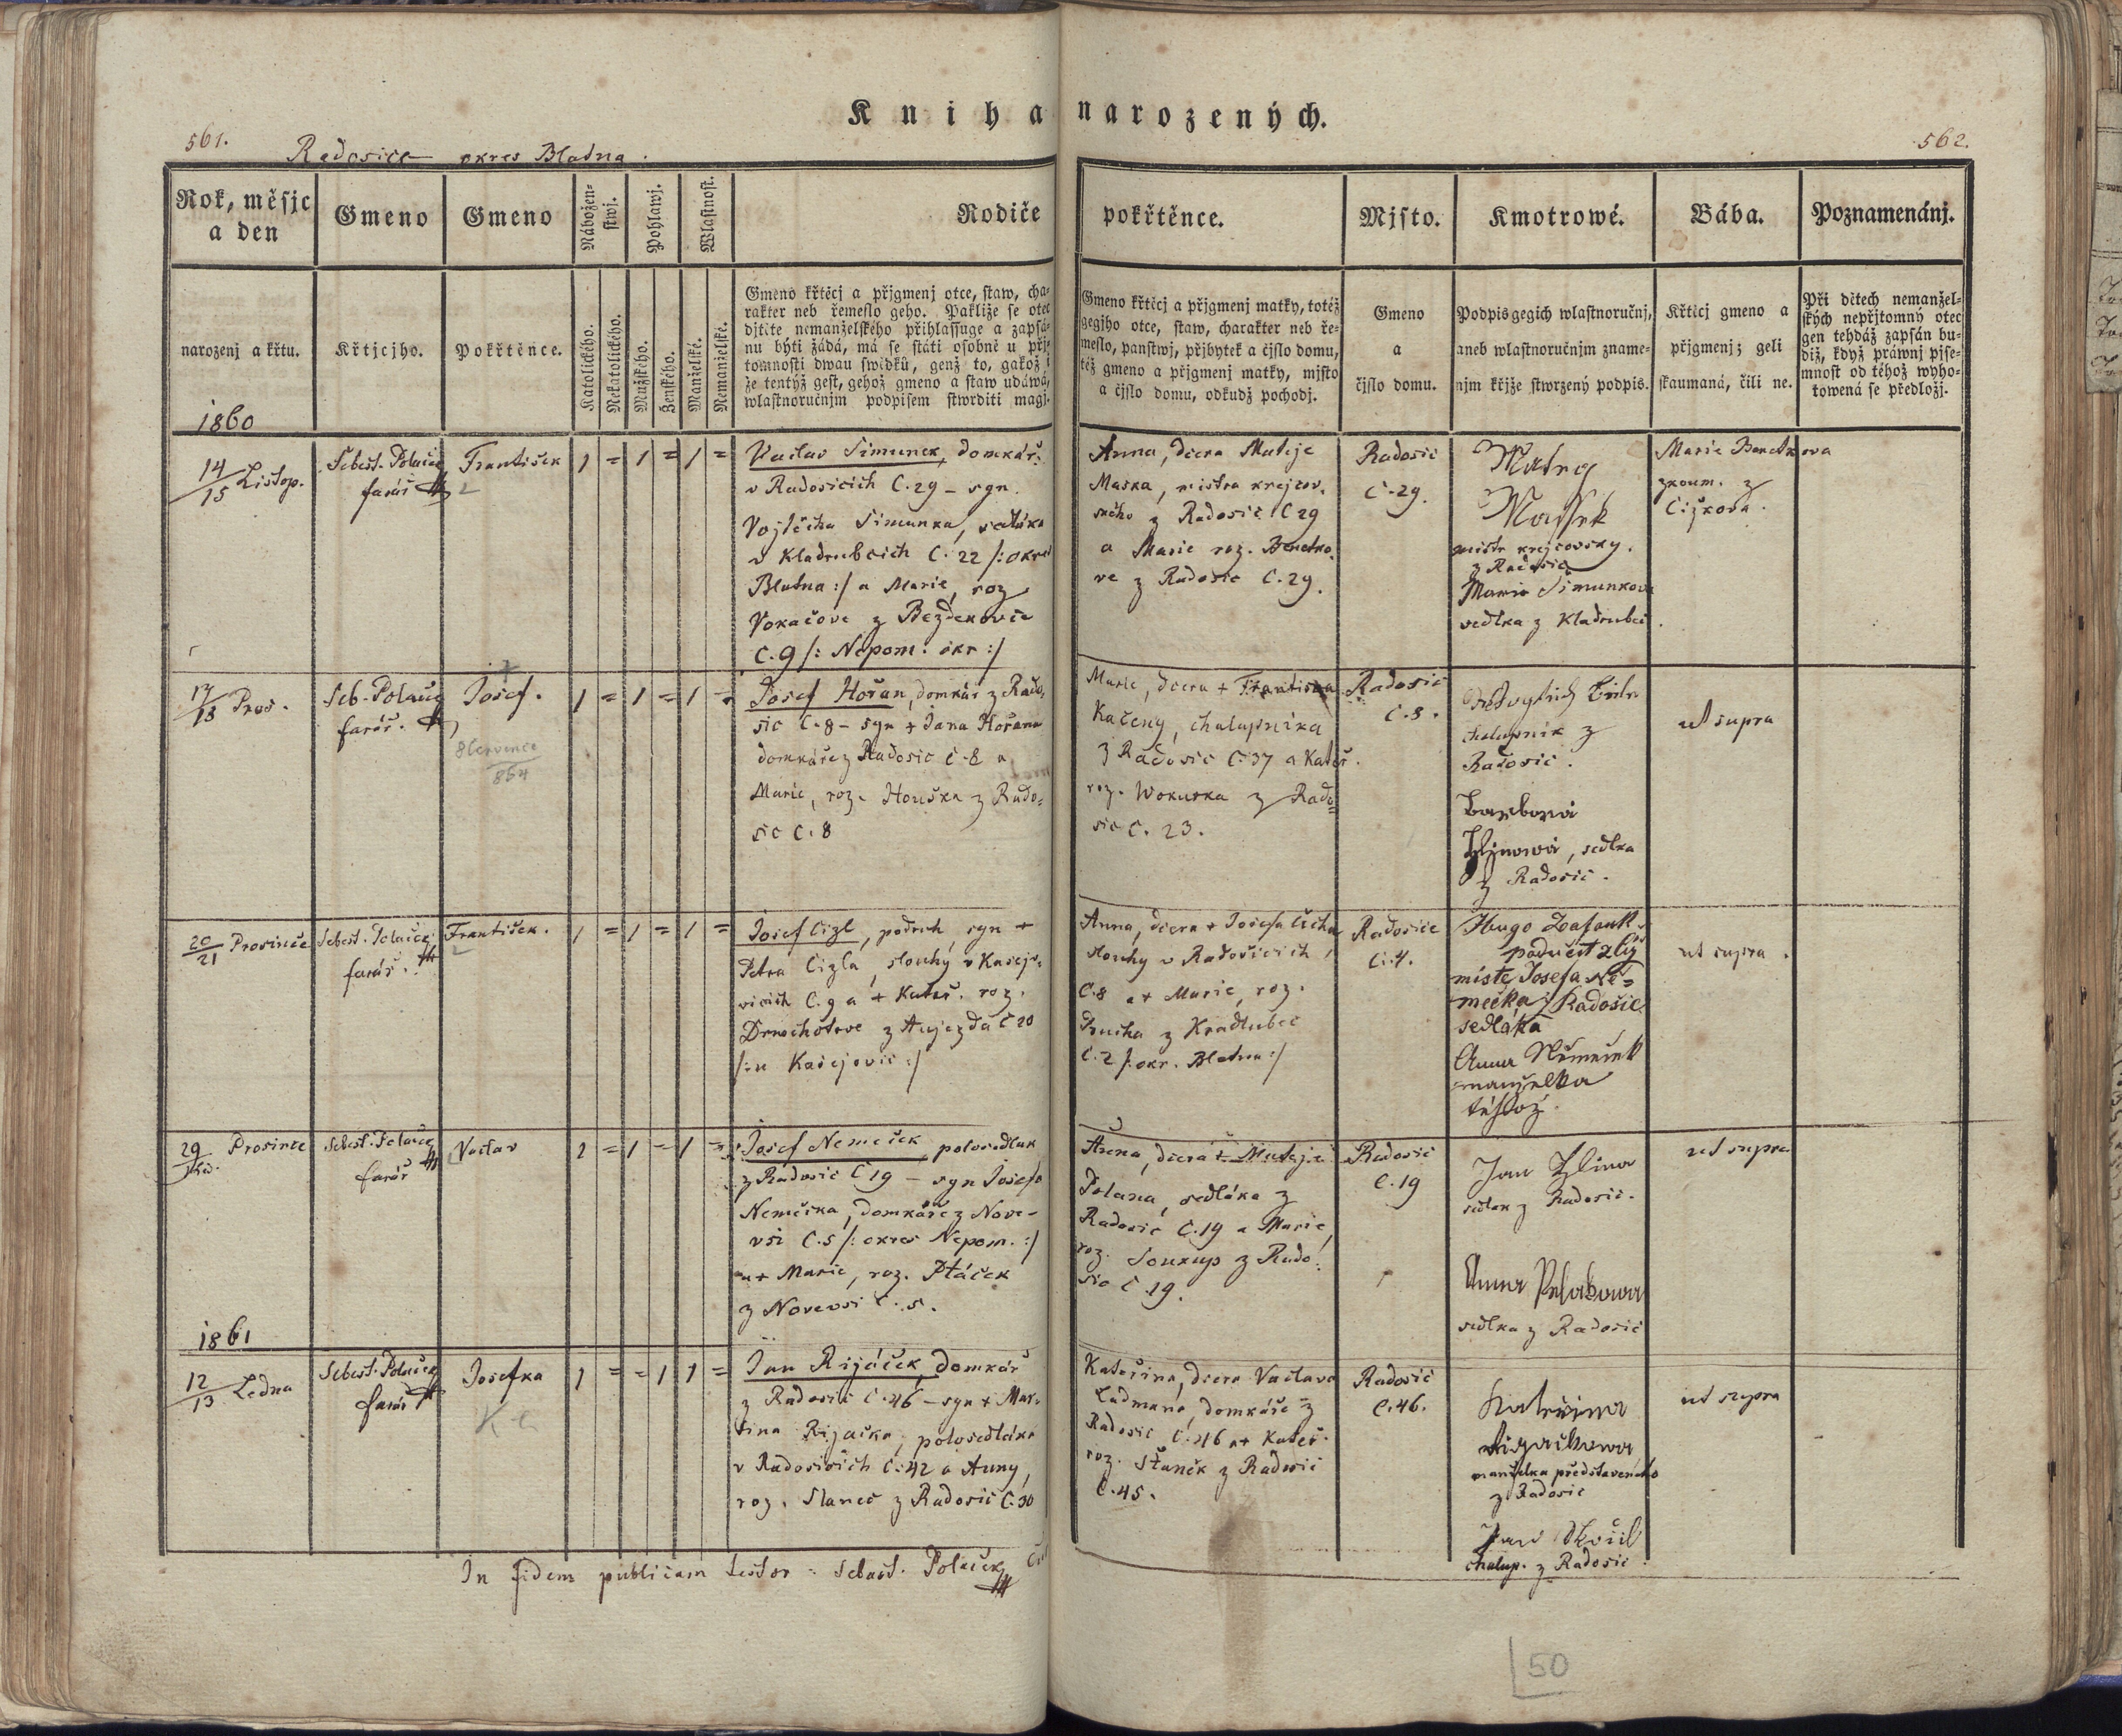 Kniha narozených.
561.
562.
Radosice okres Blatna.
Rok, měsjc
a den
Gmeno
Gmeno
Nábožen-
stwj.
Pohlawj.
Wlastnost.
Rodiče
pokřtěnce.
Mjsto.
Kmotrowé.
Bába.
Poznamenánj.
narozenj a křtu.
Křtjcjho.
Pokřtěnce.
Katolického.
Nekatolického.
Mužského.
Ženského.
Manželské.
Nemanželské.
Gmeno křtěcj a přjgmenj otce, staw, cha-
rakter neb řemeslo geho. Pakliže se otec
djtěte nemanželského přihlassuge a zapsá-
nu býti žádá, má se státi osobně u přj-
tomnosti dwau swědků, genž to, gakož i
že tentýž gest, gehož gmeno a staw udáwá,
wlastnoručnjm podpisem stwrditi magj.
Gmeno křtěcj a přjgmenj matky, totéž
gegjho otce, staw, charakter neb ře-
meslo, panstwj, přjbytek a čjslo domu,
též gmeno a přjgmenj matky, mjsto
a čjslo domu, odkudž pocházj.
Gmeno
a
čjslo domu.
Podpis gegich wlastnoručnj,
aneb wlastnoručnjm zname-
njm křjže stwrzený podpis.
Křtěcj gmeno a
přjgmenj; geli
skaumaná, čili ne.
Při dětech nemanžel-
ských nepřjtomný otec
gen tehdáž zapsán bu-
diž, když práwnj pjse-
mnost od téhož wyho-
towená se předložj.
1860
14/15 Listop.
Sebest. Polaček
farář
František
1 = 1 = 1 =
Vaclav Simunek, domkář
v Radosicich C. 29 – syn
Vojtěcha Simunka, sedláka
v Kladrubcich C. 22 /: okres
Blatna :/ a Marie, roz
Vokačove z Bezdekovic
C. 9 /: Nepom. okr :/
Anna, dcera Mateje
Maska, mistra krejcov.
skeho z Radosic C 29
a Marie roz. Benetko.
ve z Radosic C. 29.
Radosic
C. 29.
Matěg
Massek
mistr krejcovsky
z Radosic
Marie Simunkova
sedlka z Kladrubec.
Marie Benetkova
zkoum. z
Cižkova.
17/18 Pros.
Seb. Polaček
farář.
Josef.
8 Července
864
1 = 1 = 1 =
Josef Hořan, domkář z Rado-
sic C. 8 – syn + Jana Hořana
domkáře z Radosic C. 8 a
Marie, roz. Houška z Rado-
sic C. 8
Marie, dcera + Františka
Kačeny, chalupníka
z Radosic C. 37 a Kateř.
roz. Wokurka z Rado-
sic C. 23.
Radosic
C. 8.
chalupnik z
Radosic.
Barbora
Hlinowá, sedlka
z Radosic.
ut supra
20/21 Prosince
Sebest. Polaček,
farář.
František.
1 = 1 = 1 =
Josef Cizl, podruh, syn +
Petra Cizla, slouhy v Kasejo-
vicich C. 9 a + Kateř. roz.
Drnochotove z Aujezda C 20
/: u Kasejovic :/
Anna, dcera + Josefa Cicha
slouhy v Radosicich
C. 8 a + Marie, roz.
Prucha z Kradlubec
C. 2 /: okr. Blatna :/
Radosice
C. 4.
Hugo
místo Josefa Ně-
mečka z Radošic
sedláka
Anna Němeček
manželka
téhož.
ut supra.
29/30. Prosince
Sebest. Polaček
farář
Vaclav
1 = 1 = 1 =
Josef Nemeček, polosedlak
z Radosic C 19 – syn Josefa
Nemečka, domkáře z Nove-
vsi C. 5 /: okres Nepom. :/
a + Marie, roz. Ptáček
z Novevsi C. 5.
dcera + Mateje
Polana, sedláka z
Radosic C. 19 a Marie,
roz. Soukup z Rado-
sic C. 19.
Radosic
C. 19
Jan Hlina
sedlak z Radosic.
Anna
sedlka z Radosic
ut supra
1861
12/13 Ledna
Sebest. Polaček
farář
Josefka
1 = = 1 1 =
Jan Rijáček, domkář
z Radosic C. 46 – syn + Mar-
tina Rijačka, polosedláka
v Radosicich C. 42 a Anny,
roz. Slaneč z Radosic C. 30
Kateřina, dcera Vaclava
Ladmana, domkáře z
Radosic C. 46 a + Kateř.
roz. Staněk z Radosic
C. 45.
Radosic
C. 46.
Kateřina
Rigáčkowa
manželka představeneho
z Radosic
Jan
chalup. z Radosic
ut supra
In fidem publicam testor: Sebast. Polaček
50